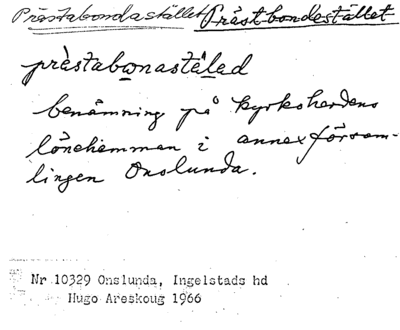 Prästabondastället Prästbondestället
prästabonastäled
benämning på kyrkoherdens
lönehemman i annexförsam-
lingen Onslunda.
Nr 10329 Onslunda, Ingelstads hd
Hugo Areskoug 1966